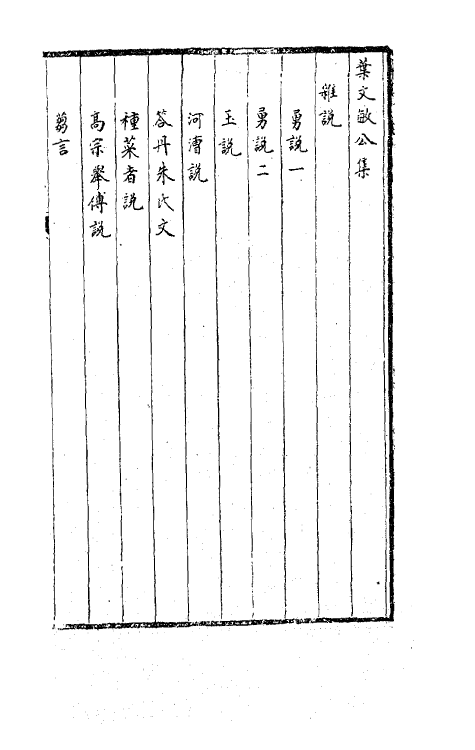 葉文敏公集
雜說
勇說一
勇說二
玉說
河漕說
答丹朱氏文
種菜者說
高宗舉傅說
芻言